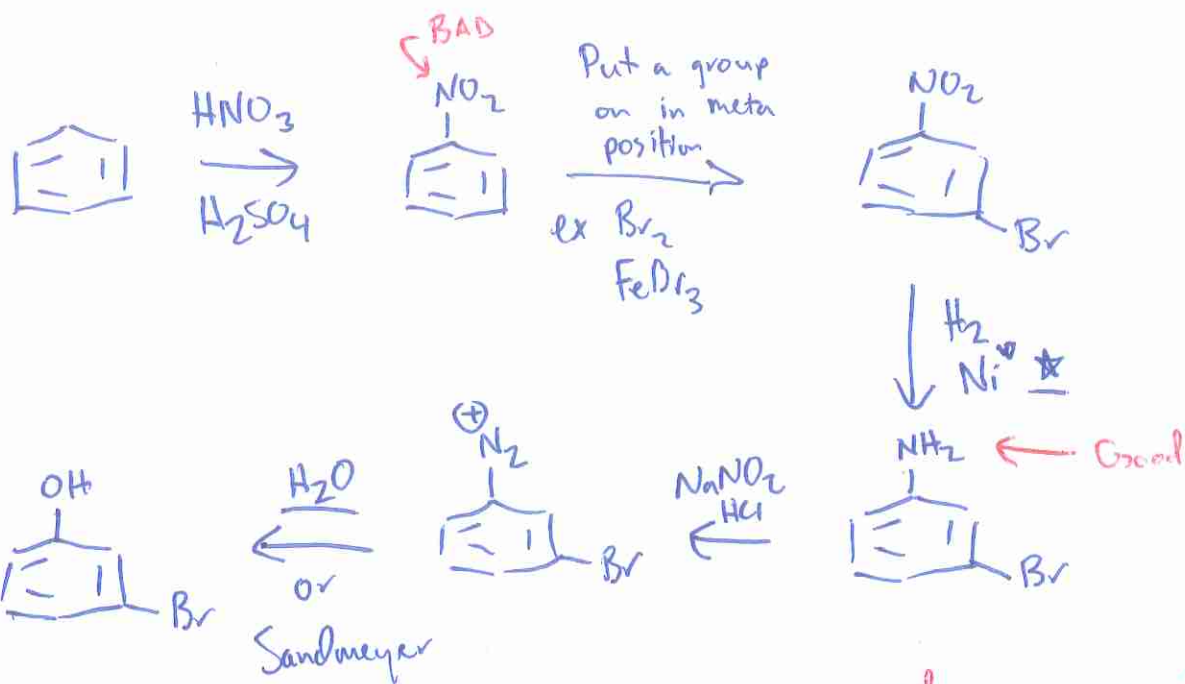 BAD
HNO₃
H₂SO₄
NO₂
Put a group
on in meta
position
ex Br₂
FeBr₃
NO₂
Br
H₂
Ni
NH₂
Good
Br
NaNO₂
HCl
⊕
N₂
Br
H₂O
or
Sandmeyer
OH
Br